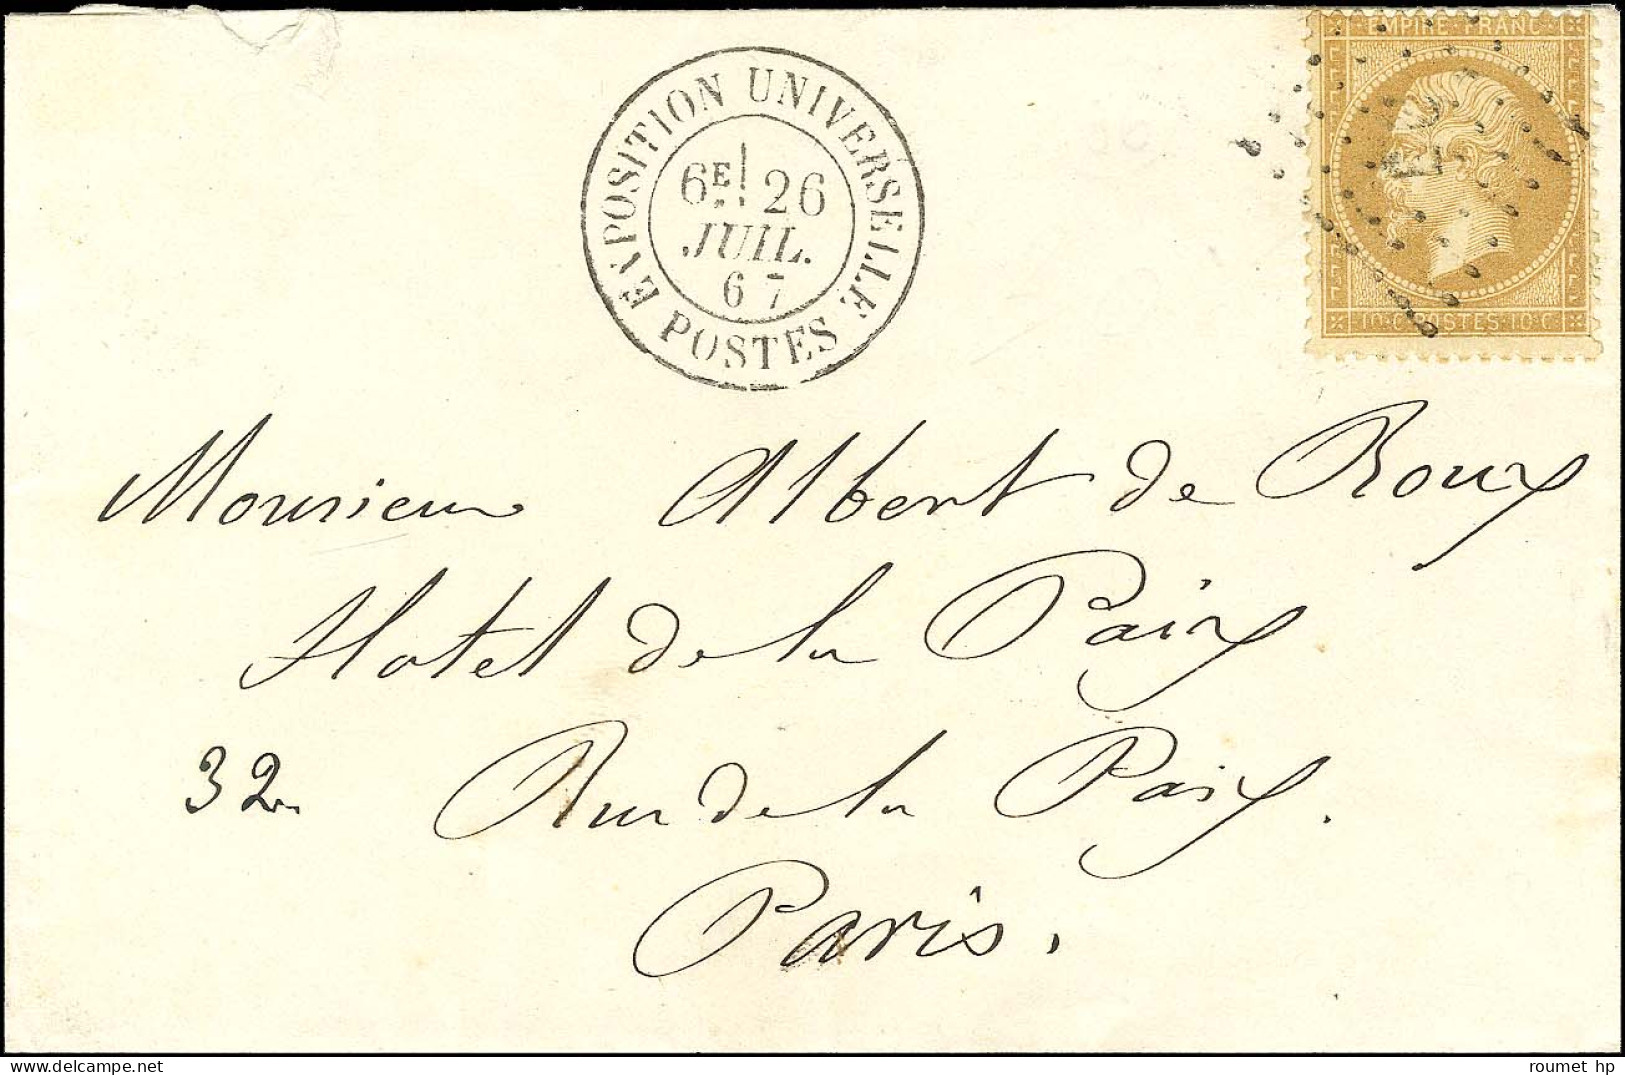 EMPIRE FRANC
EXPOSITION UNIVERSELLE
6E 26
JUIL.
67
POSTES
10 C POSTES 10 C
Monsieur Albert de Roux
Hotel de la Paix
32 Rue de la Paix.
Paris.
roumet hp